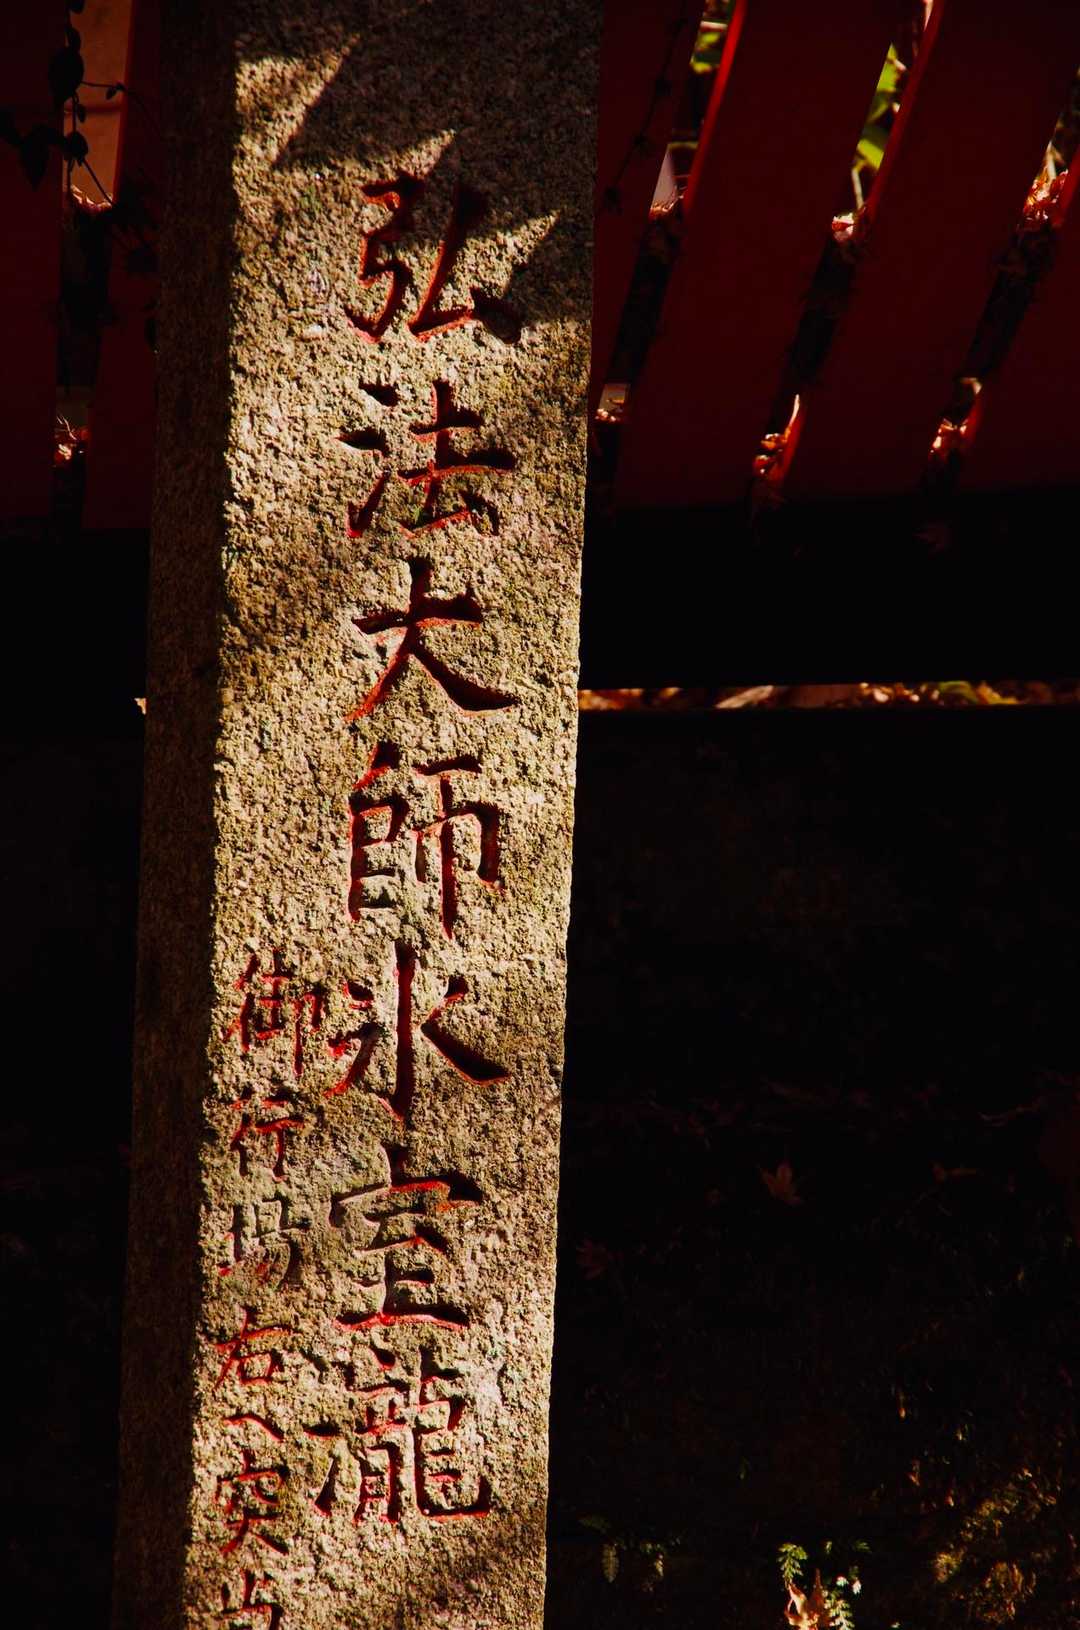 弘法大師氷室瀧
御行場右へ突当